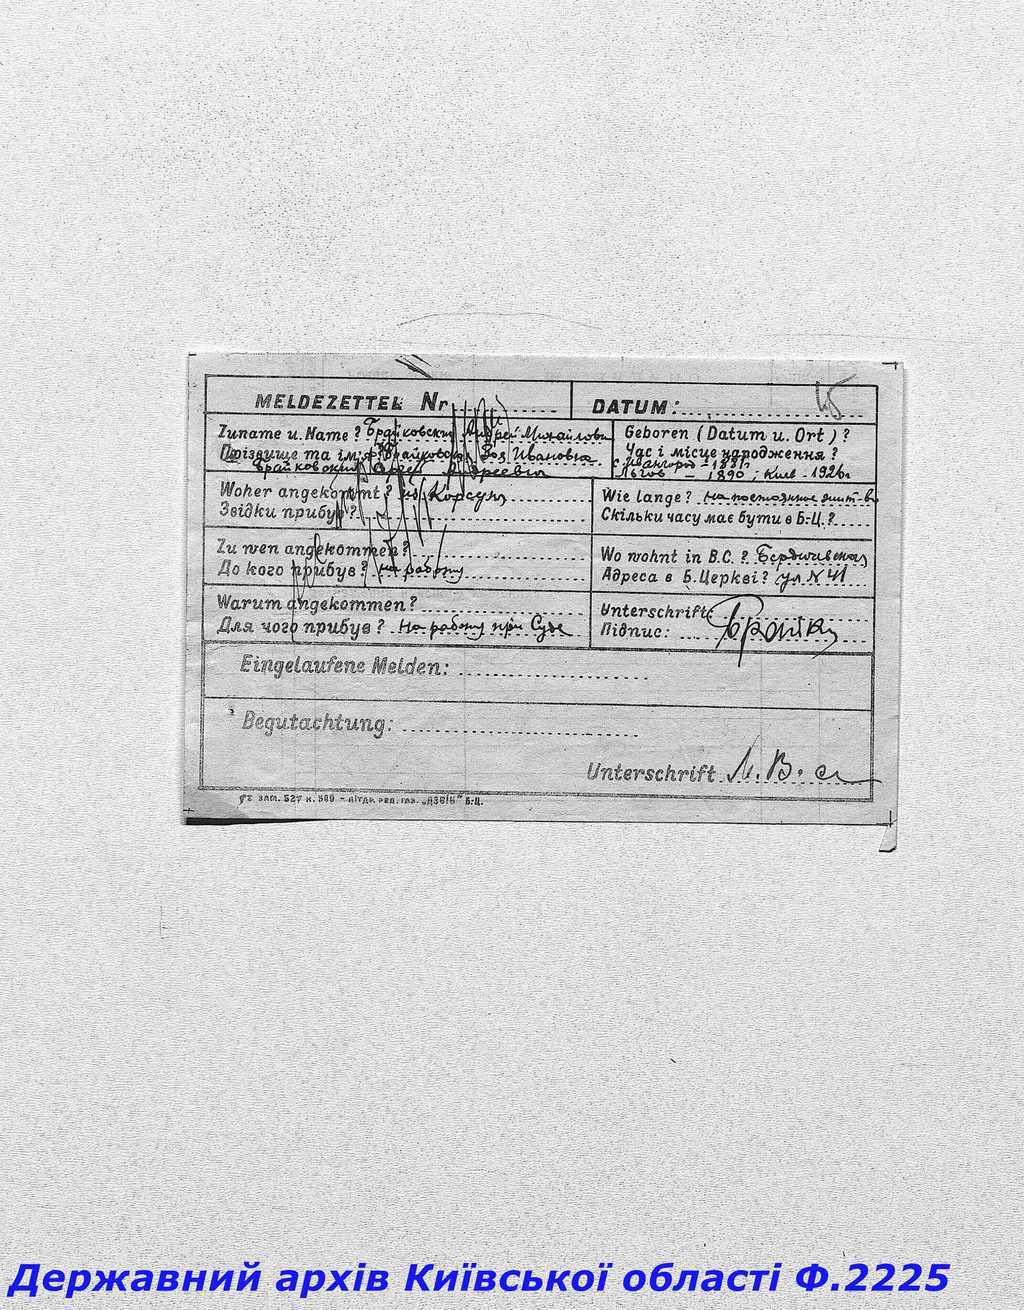 MELDEZETTEL Nr
DATUM: 45
Zuname u. Name? Брайковский Андрей Михайлович
Прізвище та ім'я? Брайковская Зоя Ивановна
Брайковский
Geboren (Datum u. Ort)?
Час і місце народження?
1890, Киев - 1926г
Woher angekommt? из Корсуня
Звідки прибув?
Wie lange? на постоянное жит-во
Скільки часу має бути в Б-Ц.?
Zu wen angekommen?
До кого прибув? на работу
Wo wohnt in B.C.? Бердичевская
Адреса в Б. Церкві? ул N 41
Warum angekommen?
Для чого прибув? На работу при Суде
Unterschrift:
Підпис: Брайк
Eingelaufene Melden:
Begutachtung:
Unterschrift
ЗАМ. 527 н. 500 – ЛІТДР. РЕД. ГАЗ. „ДЗВІН" Б-Ц.
Державний архів Київської області Ф.2225